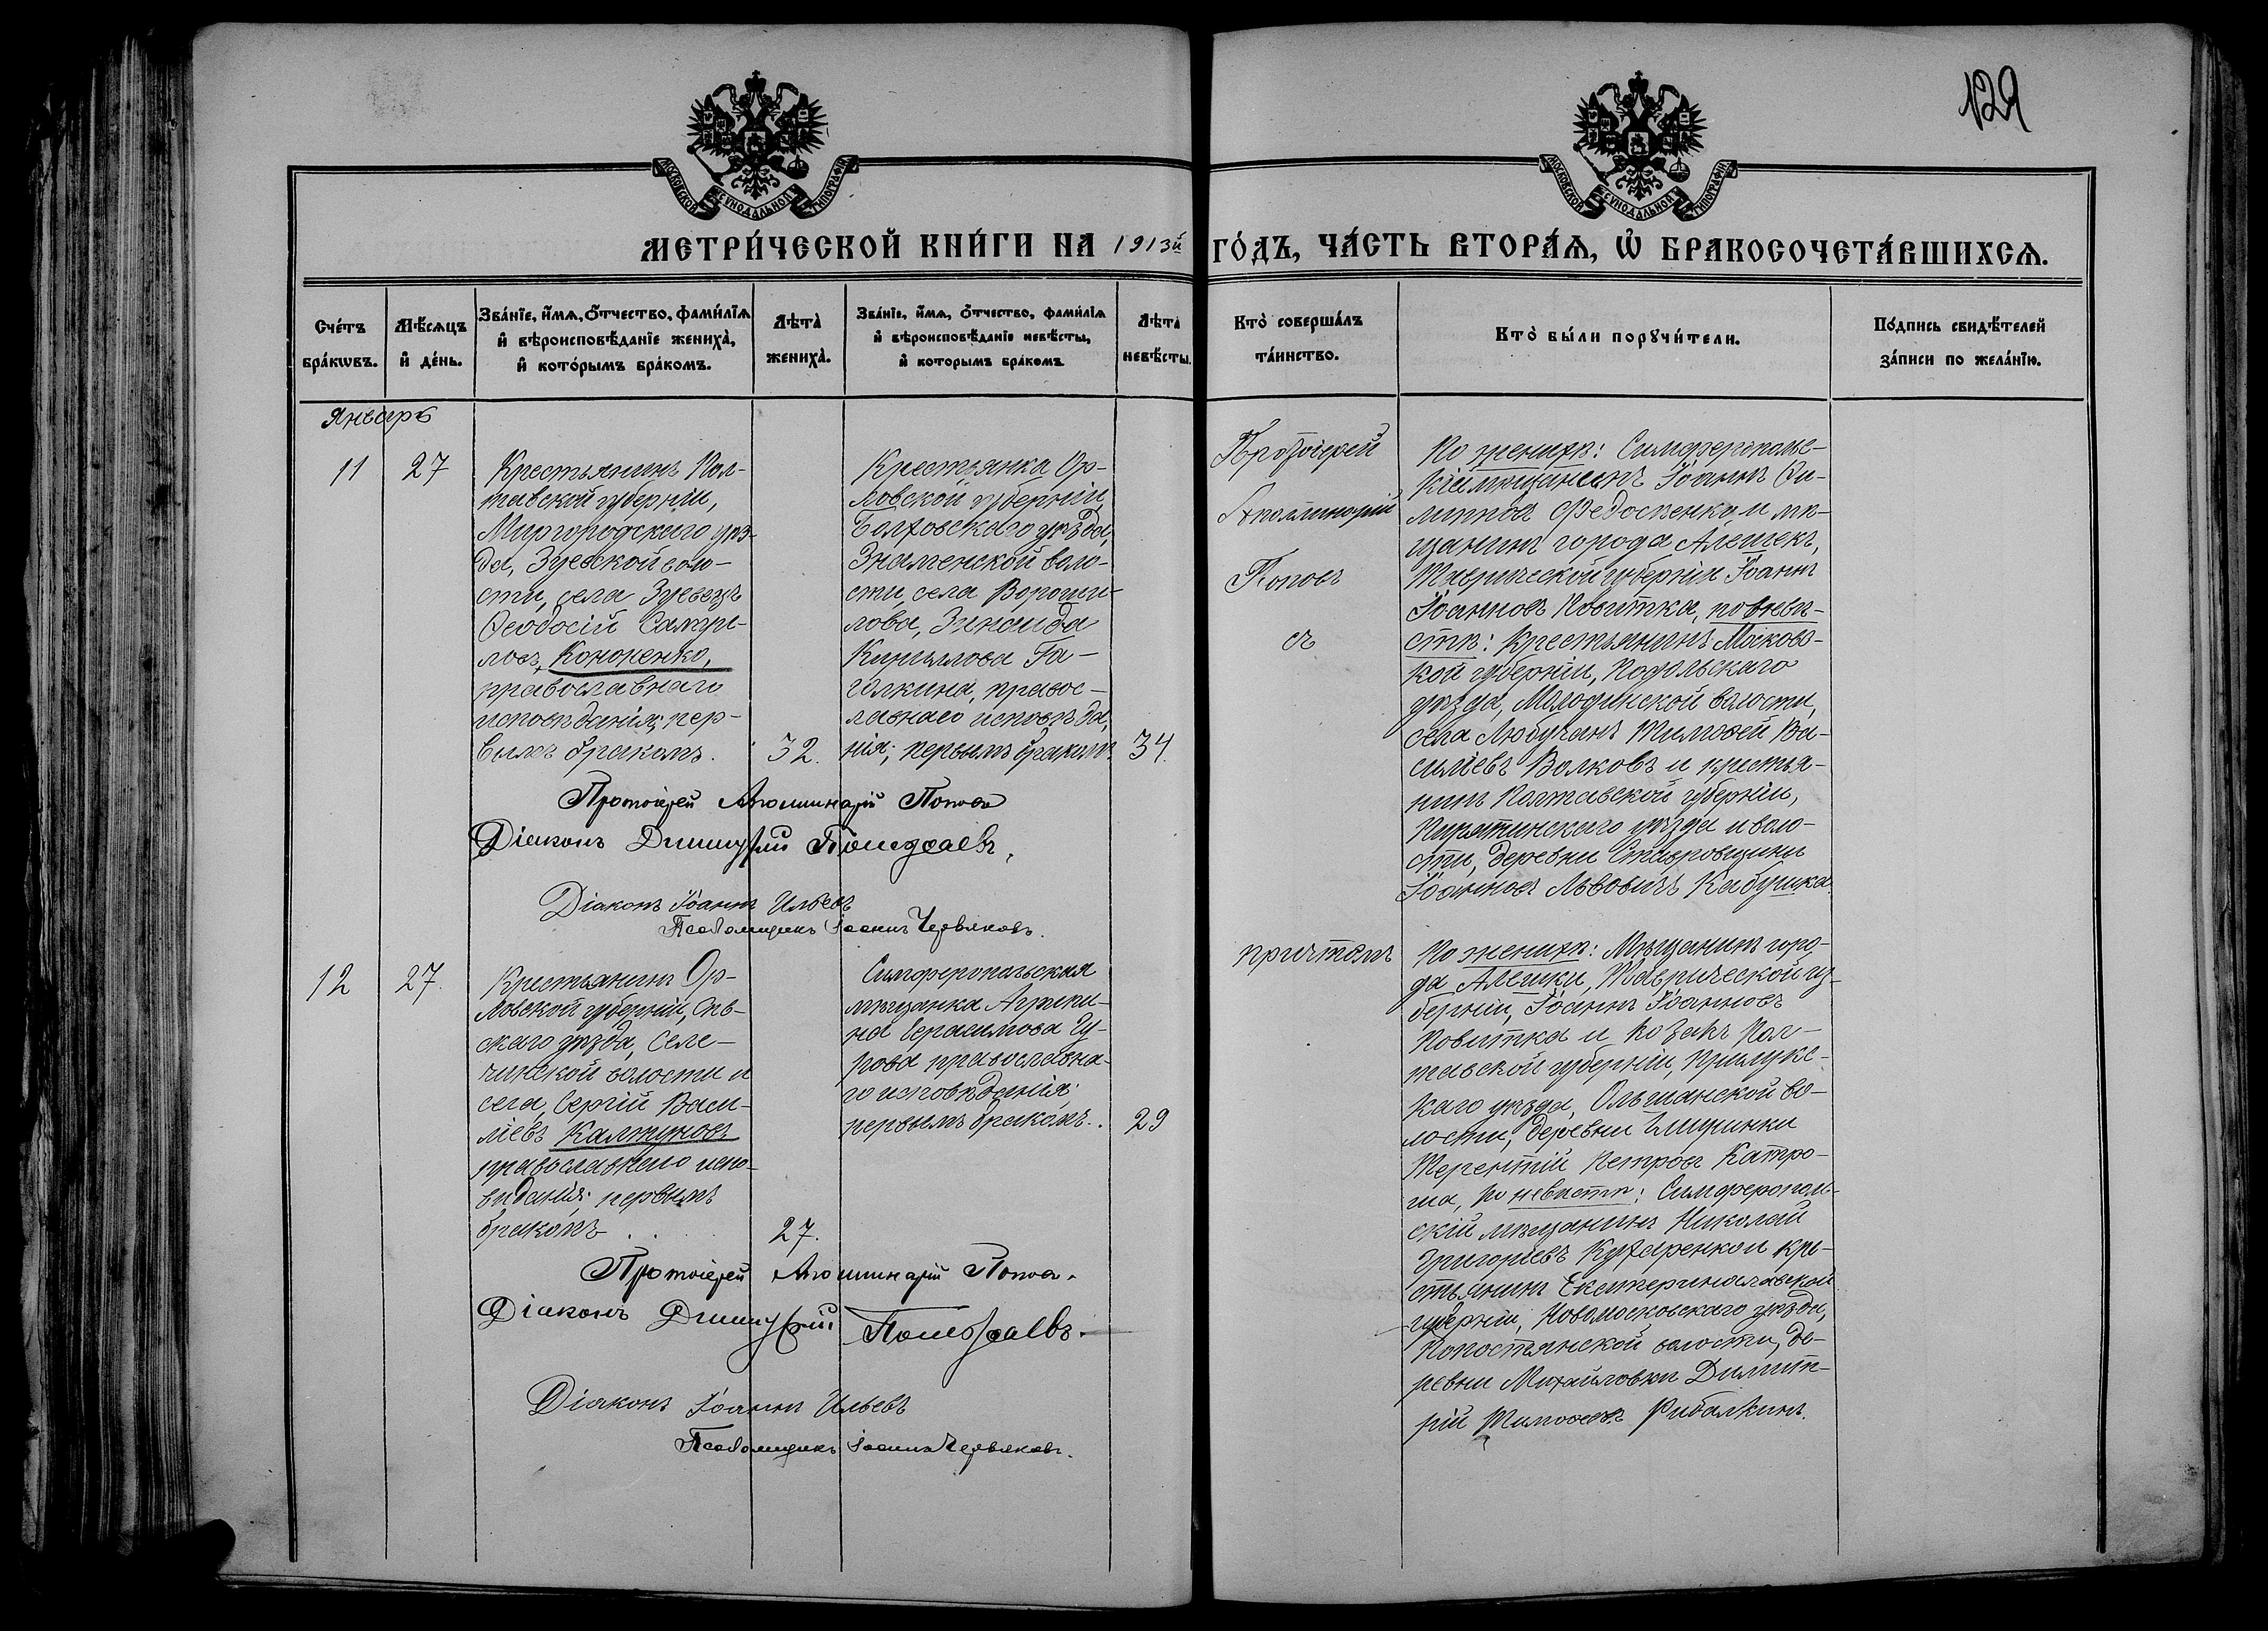 129
МОСКОВСКОЙ СѴНОДАЛЬНОЙ ТИПОГРАФІИ
МОСКОВСКОЙ СѴНОДАЛЬНОЙ ТИПОГРАФІИ
МЕТРИ́ЧЕСКОЙ КНИ́ГИ НА 1913й ГО́ДЪ, ЧА́СТЬ ВТОРА́Ѧ, Ѡ҆ БРАКОСОЧЕТА́ВШИХСѦ.
Сче́тъ
бра́кѡвъ.
Мѣ́сѧцъ
и҆ де́нь.
Зва́нїе, и҆́мѧ, ѻ҆́тчество, фами́лїѧ
и҆ вѣроисповѣ́данїе жениха̀,
и҆ кото́рымъ бра́комъ.
Лѣта̀
жениха̀.
Зва́нїе, и҆́мѧ, ѻ҆́тчество, фами́лїѧ
и҆ вѣроисповѣ́данїе невѣ́сты,
и҆ кото́рымъ бра́комъ
Лѣта̀
невѣ́сты.
Кто̀ соверша́лъ
та́инство.
Кто̀ бы́ли порꙋчи́тели.
По́дпись свидѣ́телей
за́писи по жела́нїю.
Январь
11
27
Крестьянинъ Пол-
тавской губерніи,
Миргородскаго уѣз-
да, Зуевской воло-
сти, села Зуевецъ
Ѳеодосій Самуи-
ловъ Кононенко,
православнаго
исповѣданія; пер-
вымъ бракомъ.
32.
Крестьянка Ор-
ловской губерніи,
Болховскаго уѣзда,
Знаменской воло-
сти, села Вороши-
лова, Зинаида
Кириллова Га-
лкина, правос-
лавнаго исповѣда-
нія; первымъ бракомъ.
34.
Протоіерей
Аполлинарій
Поповъ
съ
причтомъ
По женихѣ: Симферопольс-
кій мѣщанинъ Іоаннъ Фи-
липповъ Федосѣенко и мѣ-
щанинъ города Алешекъ,
Таврической губерніи Іоаннъ
Іоанновъ Повитка, по невѣ-
стѣ: крестьянинъ Московс-
кой губерніи, Подольскаго
уѣзда, Молодинской волости,
села Любучанъ Тимофей Ва-
сильевъ Волковъ и крестья-
нинъ Полтавской губерніи,
Пирятинскаго уѣзда и воло-
сти, деревни
Іоанновъ Львовичъ Кабушка.
Протоіерей Аполлинарій Поповъ
Діаконъ Димитрій
Діаконъ Іоаннъ Ильевъ
Псаломщикъ Іоаннъ Червяковъ.
12
27.
Крестьянинъ Ор-
ловской губерніи, Сѣв-
скаго уѣзда, Селе-
чинской волости и
села, Сергій Васи-
ліевъ Калтуновъ
православнаго испо-
вѣданія; первымъ
бракомъ . . .
27.
Симферопольская
мѣщанка Агрипи-
на Герасимова Гу-
рова православна-
го исповѣданія;
первымъ бракомъ..
29
По женихѣ: Мѣщанинъ горо-
да Алешки, Таврической гу-
берніи, Іоаннъ Іоанновъ
Повитка и козакъ Пол-
тавской губерніи, Прилукс-
каго уѣзда, Ольшанской во-
лости, деревни
Терентій Петровъ Катро-
ша, по невѣстѣ: Симферополь-
скій мѣщанинъ Николай
Григоріевъ Кухаренко и кре-
стьянинъ Екатеринославской
губерніи, Новомосковскаго уѣзда,
волости, де-
ревни Михайловки Димит-
рій Тимоѳеевъ Рибалкинъ.
Протоіерей Аполлинарій Поповъ.
Діаконъ Димитрій
Діаконъ Іоаннъ Ильевъ
Псаломщикъ Іоаннъ Червяковъ.